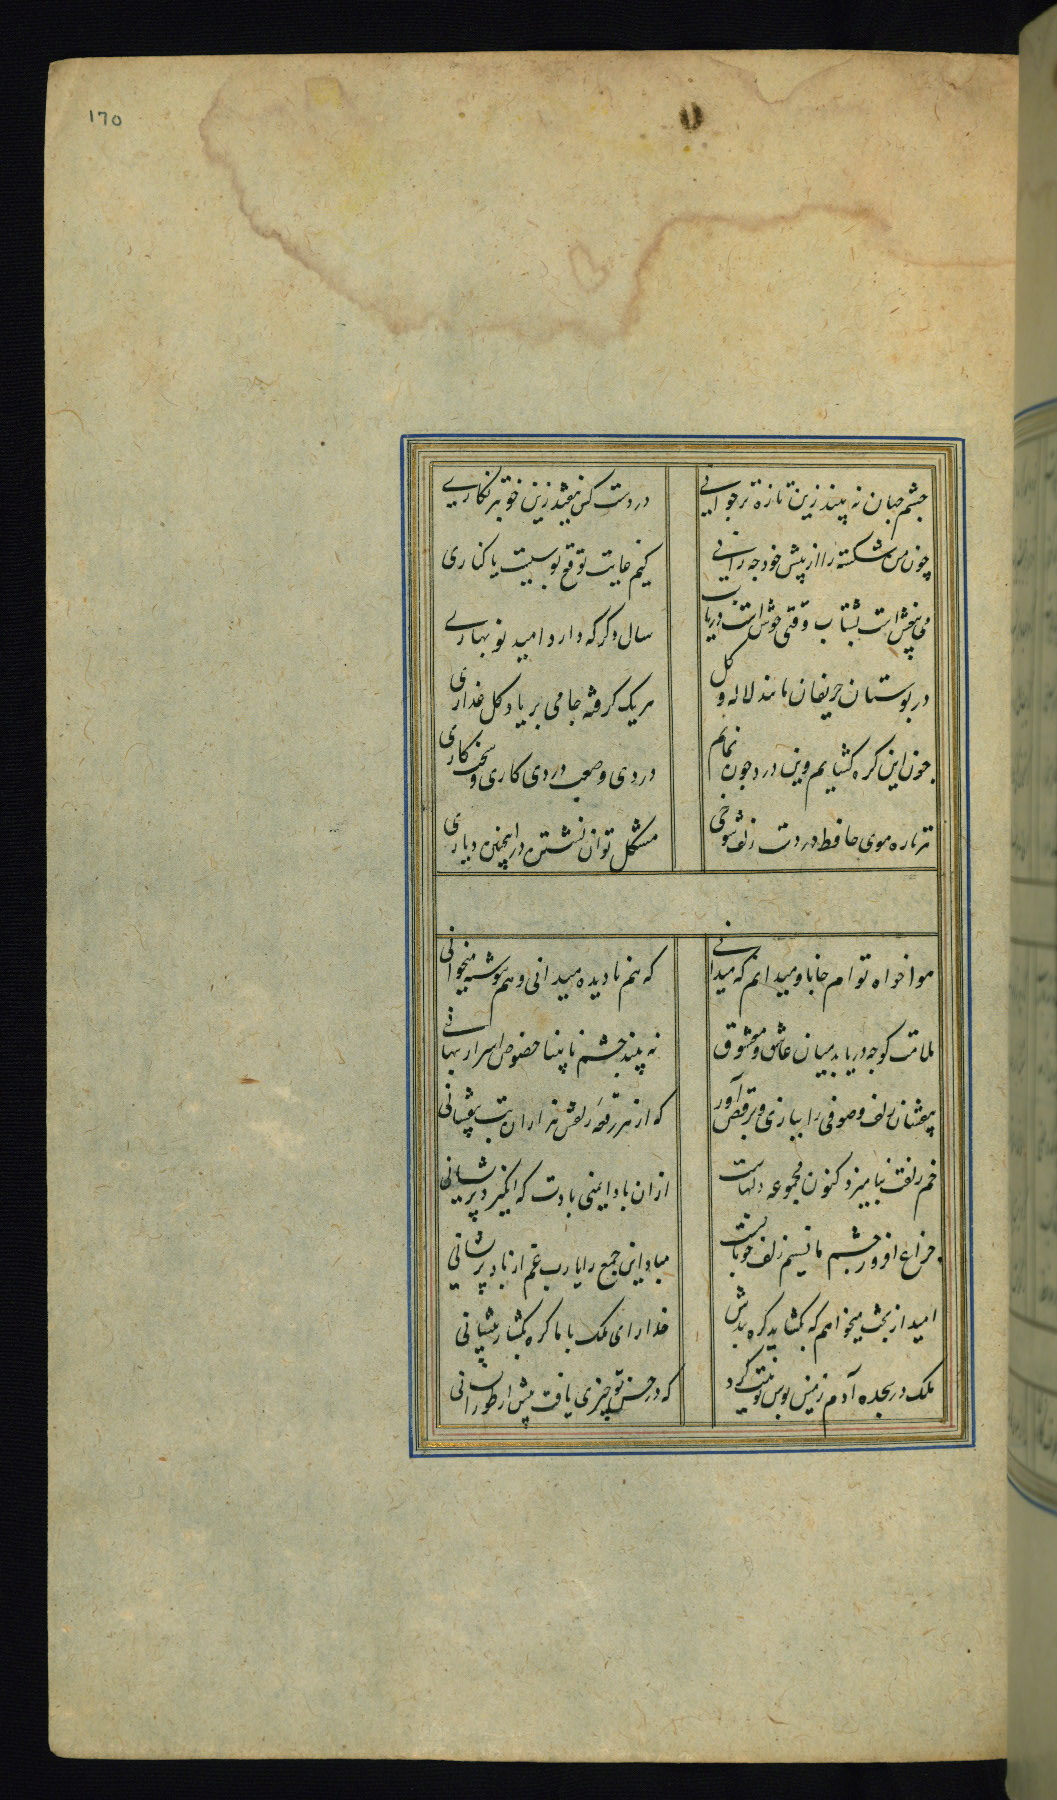 ١٦٥
چشم جهان نه بیند زین تازه تر جوانی
در دست کس نیفتد زین خوبتر نگاری
چون من شکسته را از پیش خود چه رانی
کنم غایت توقع بوسیست یا کناری
می بیغش است بشتاب وقتی خوش است دریاب
سال دگر که دارد امید نو بهاری
در بوستان حریفان مانند لاله و گل
هریک گرفته جامی بر یاد گل عذاری
چون این گره گشایم وین درد چون نمایم
دردی و صعب دردی کاری و سخت کاری
هر تاره موی حافظ در دست زلف شوخی
مشکل توان نشستن در اینچنین دیاری
هوا خواه توام جانا و میدانم که میدانی
که هم نادیده میدانی و هم ننوشته میخوانی
ملامت کو چه دریابد میان عاشق و معشوق
نه بیند چشم نابینا خصوص اسرار پنهانی
بیفشان زلف و صوفی را ببازی و برقص آور
که از هر رقعه زلفش هزاران بت بیفشانی
خم زلفت بنامیزد کنون مجموعه دلهاست
ازان باد ایمنی بادت که انگیزد پریشانی
چراغ افروز چشم ما نسیم زلف خوبانست
مباد این جمع را یارب غم از باد پریشانی
امید از بخت میخواهم که بگشاید گره بندش
خدا را ای ملک با ما گره بگشا ز پیشانی
ملک در سجده آدم زمین بوس تو نیت کرد
که در حسن تو چیزی یافت بیش از طور انسانی